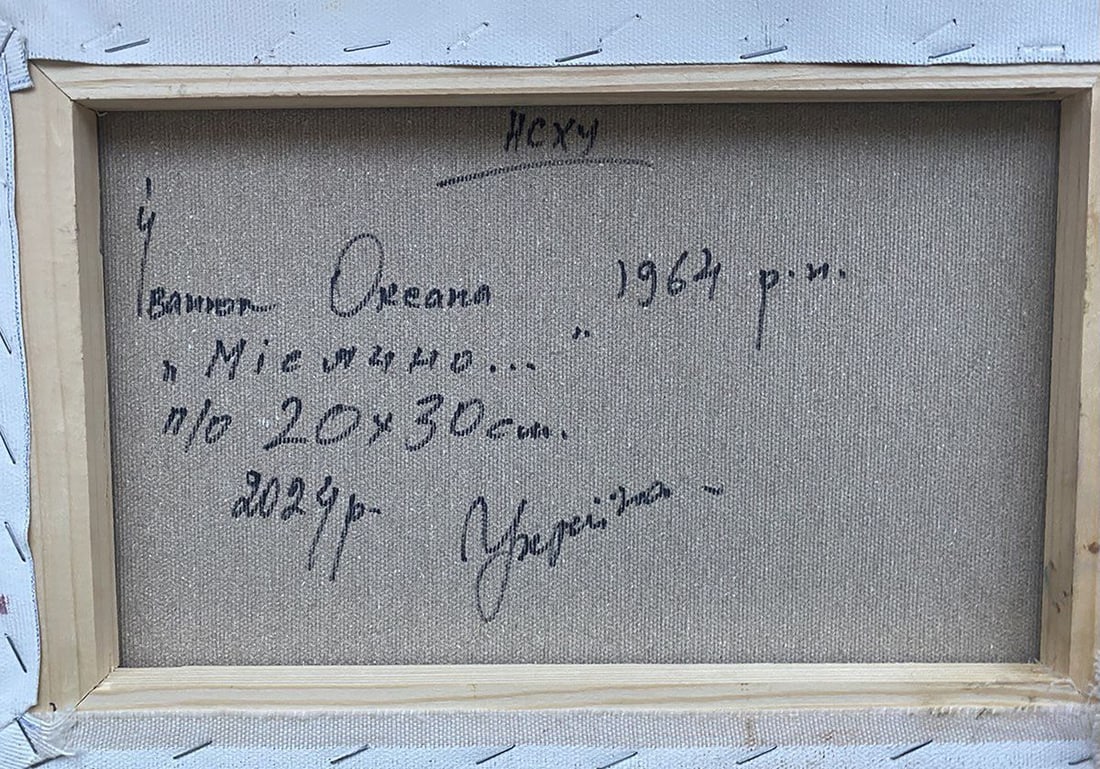 НСХУ
Іванюк Оксана 1964 р.н.
„Місячно..."
п/о 20х30 см.
2024р. Україна -